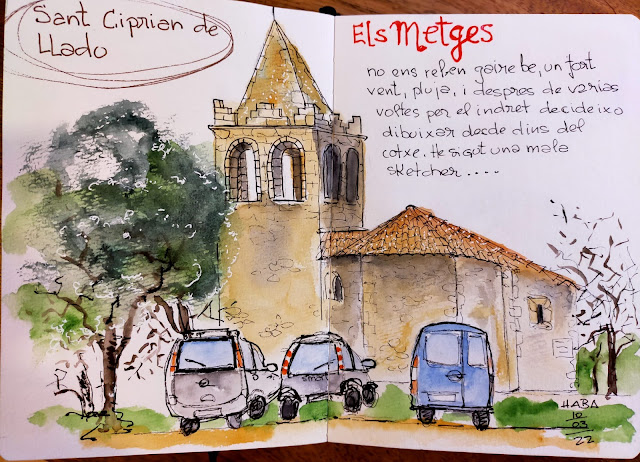 Sant Ciprian de
LLado
Els Metges
no ens reben gaire be, un fort
vent, pluja, i despres de varias
voltes per el indret decideixo
dibuixar desde dins del
cotxe. He sigut una mala
sketcher.....
smart
HABA
10
22